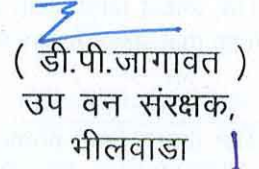 ( डी.पी.जागावत )
उप वन संरक्षक,
भीलवाडा